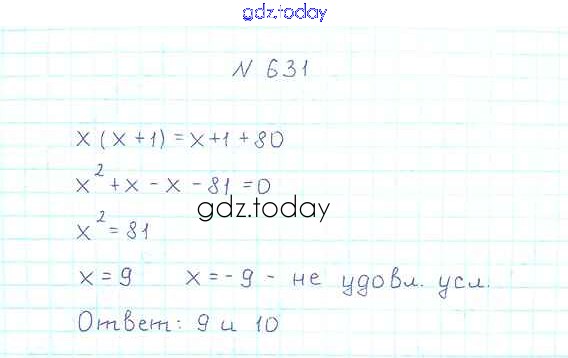 gdz.today
N 631
x (x + 1) = x + 1 + 80
x² + x - x - 81 = 0
gdz.today
x² = 81
x = 9 x = - 9 - не удовл. усл.
Ответ: 9 и 10